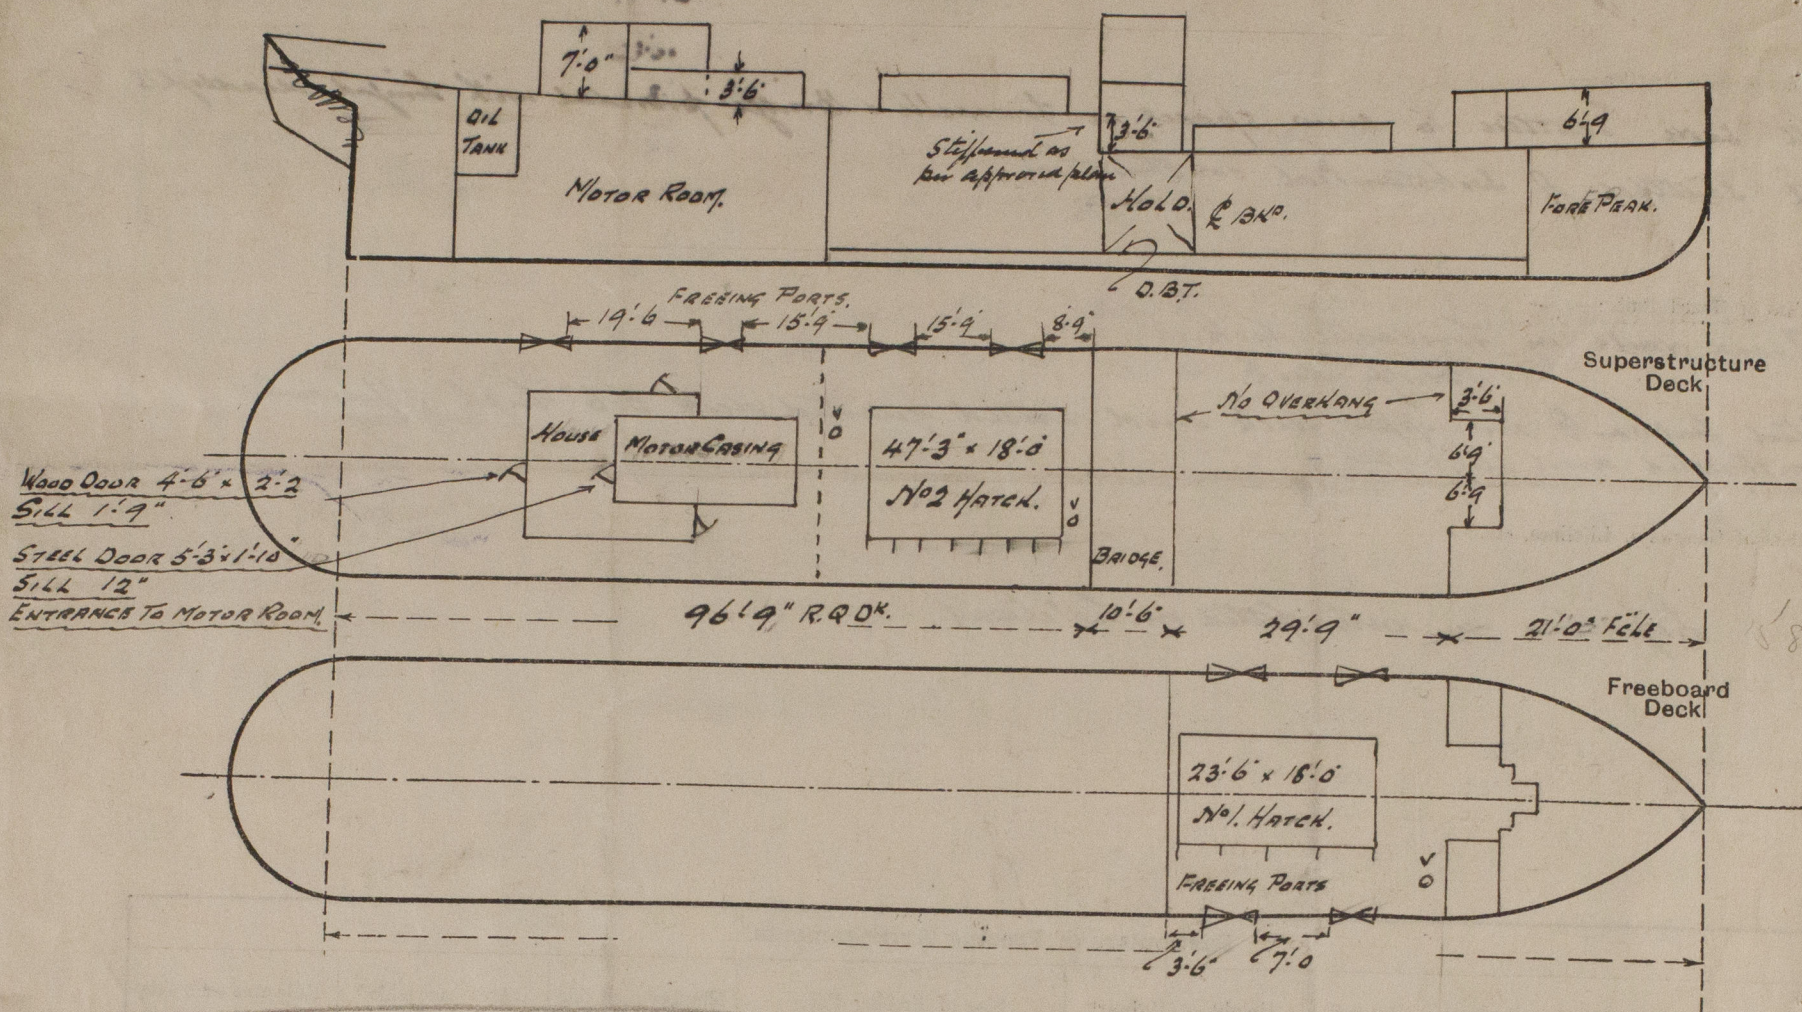 7'-0"
3'-6"
OIL
TANK
MOTOR ROOM.
Stiffened as
per approved plan
3'-6"
HOLD.
℄ BKD.
6'-9
FORE PEAK.
D.B.T.
FREEING PORTS.
19'-6
15'-9"
15'-9"
8'-9"
Superstructure
Deck
NO OVERHANG
3'-6"
6'-9"
6'-9
HOUSE
MOTOR CASING
V
O
47'-3" x 18'-0"
No 2 HATCH.
V
O
BRIDGE.
WOOD DOOR 4'-6 x 2'-2
SILL 1'-9"
STEEL DOOR 5'-3 x 1'-10"
SILL 12"
ENTRANCE TO MOTOR ROOM.
96'-9" R.Q DK.
10'-6"
29'-9"
21'-0" FċLE
Freeboard
Deck
23'-6" x 18'-0"
No 1. HATCH.
FREEING PORTS
V
O
3'-6"
7'-0